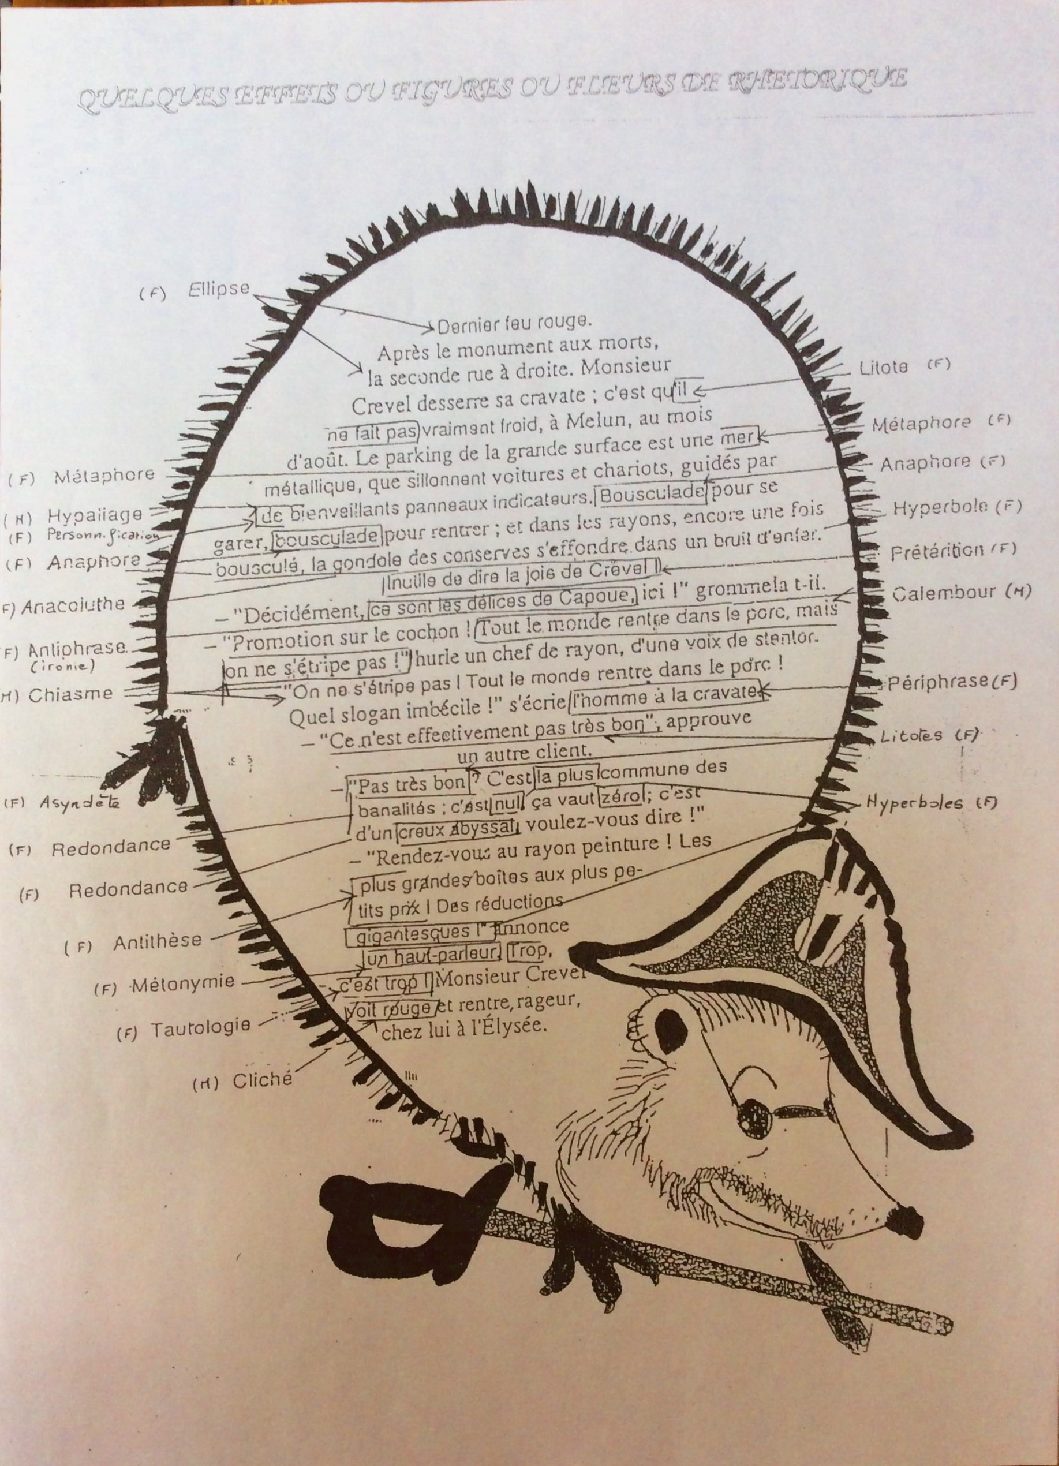 QUELQUES EFFETS OU FIGURES OU FLEURS DE RHETORIQUE
(F) Ellipse
Dernier feu rouge.
Après le monument aux morts,
la seconde rue à droite. Monsieur
Crevel desserre sa cravate ; c'est qu'il
ne fait pas vraiment froid, à Melun, au mois
d'août. Le parking de la grande surface est une mer
métallique, que sillonnent voitures et chariots, guidés par
de bienveillants panneaux indicateurs. Bousculade pour se
garer, bousculade pour rentrer ; et dans les rayons, encore une fois
bousculé, la gondole des conserves s'effondre dans un bruit d'enfer.
Inutile de dire la joie de Crevel !
– "Décidément, ce sont les délices de Capoue, ici !" grommela t-il.
– "Promotion sur le cochon ! Tout le monde rentre dans le porc, mais
on ne s'étripe pas !" hurle un chef de rayon, d'une voix de stentor.
"On ne s'étripe pas ! Tout le monde rentre dans le porc !
Quel slogan imbécile !" s'écrie l'homme à la cravate
– "Ce n'est effectivement pas très bon", approuve
un autre client.
– "Pas très bon ? C'est la plus commune des
banalités ; c'est nul, ça vaut zéro ; c'est
d'un creux abyssal, voulez-vous dire !"
– "Rendez-vous au rayon peinture ! Les
plus grandes boîtes aux plus pe-
tits prix ! Des réductions
gigantesques !" annonce
un haut-parleur. Trop,
c'est trop ! Monsieur Crevel
voit rouge et rentre, rageur,
chez lui à l'Élysée.
(F) Métaphore
(M) Hypallage
(F) Personnification
(F) Anaphore
F) Anacoluthe
F) Antiphrase
(ironie)
M) Chiasme
(F) Asyndète
(F) Redondance
(F) Redondance
(F) Antithèse
(F) Métonymie
(F) Tautologie
(M) Cliché
Litote (F)
Métaphore (F)
Anaphore (F)
Hyperbole (F)
Prétérition (F)
Calembour (M)
Périphrase (F)
Litotes (F)
Hyperboles (F)